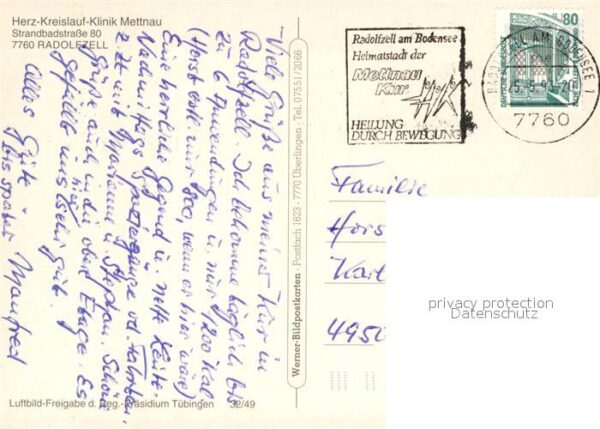 Herz-Kreislauf-Klinik Mettnau
Strandbadstraße 80
7760 RADOLFZELL
Viele Grüße aus meiner Kur in
Radolfzell. Ich bekomme täglich bis
zu 6 Anwendungen u. nur 1200 Kal.
(Horst evtl. nur 800, wenn er hier wäre)
Eine herrliche Gegend u. nette Leute.
Nachmittags Spaziergänge od. Fahrten
z. Zt. mit Marianne u. Stephan. Schöne
Grüße auch in die obere Etage. Es
gefällt uns hier sehr gut.
Alles Gute
bis später Manfred
Luftbild-Freigabe d. Reg.-Präsidium Tübingen 32/49
Werner-Bildpostkarten · Postfach 1623 · 7770 Überlingen · Tel. 07551/2066
Radolfzell am Bodensee
Heimatstadt der
Mettnau
Kur
HEILUNG
DURCH BEWEGUNG
80
DEUTSCHE BUNDESPOST
AM BODENSEE 1
7760
Familie
Hors
Karl
4950
privacy protection
Datenschutz